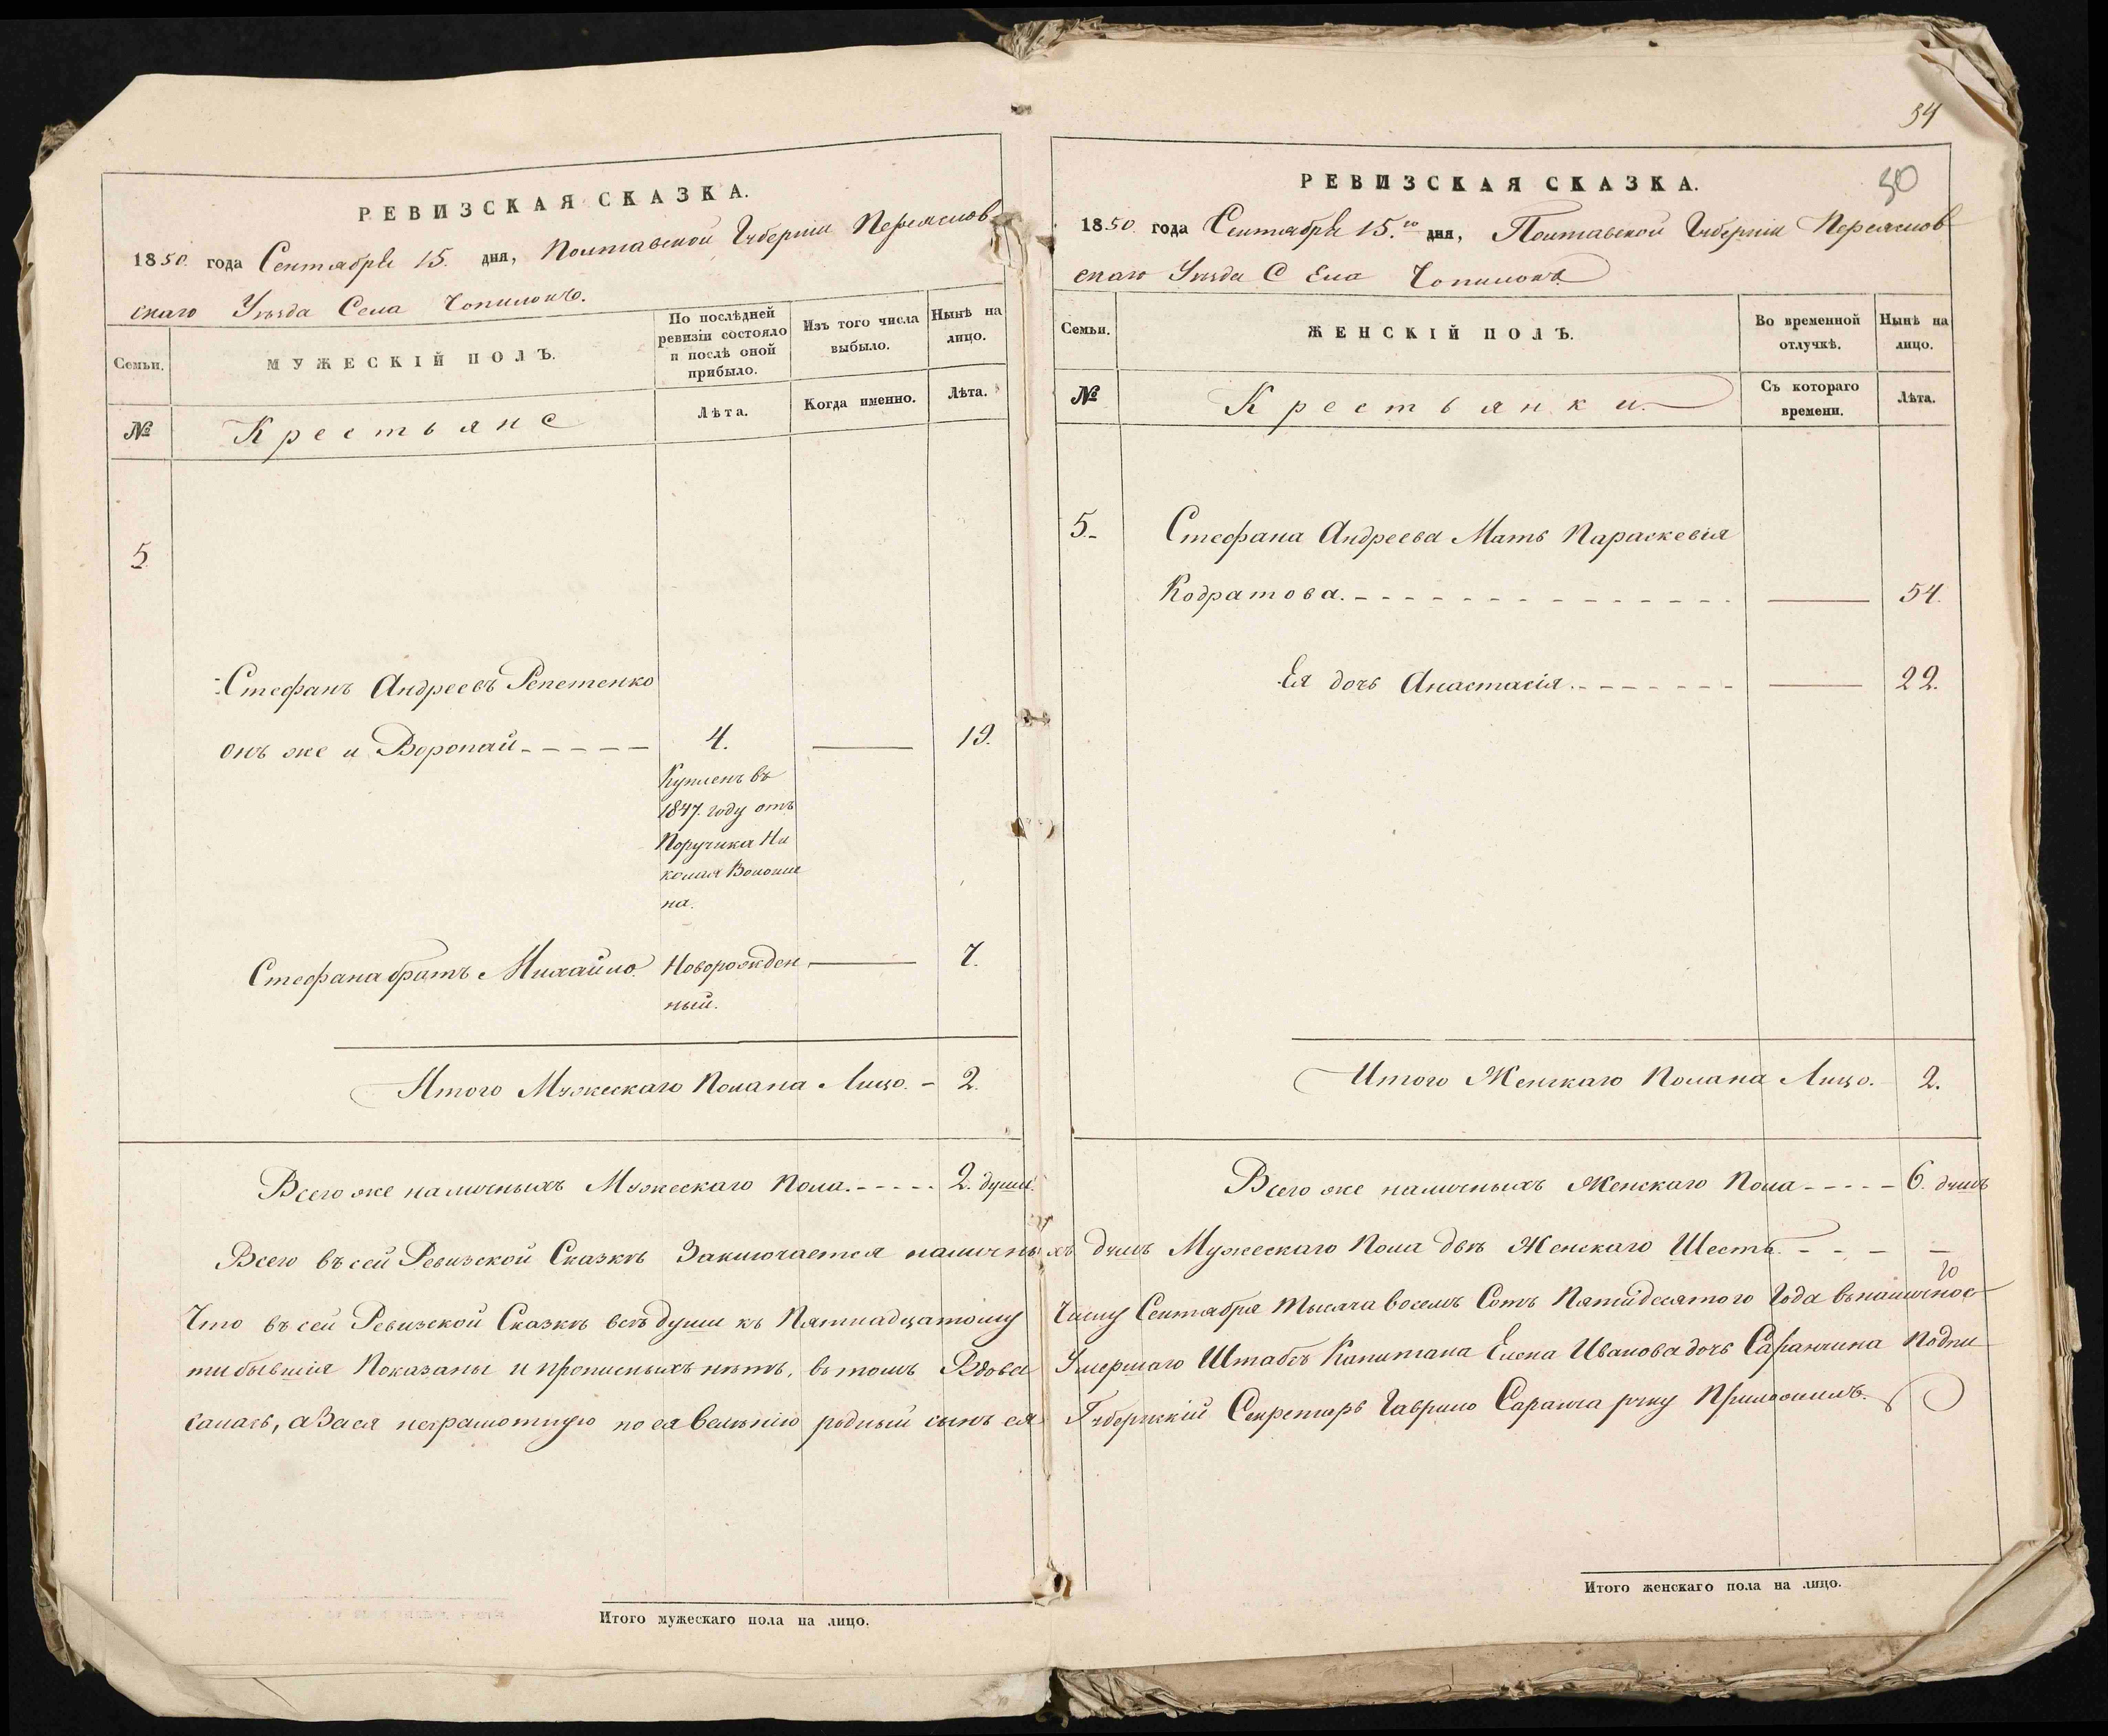 РЕВИЗСКАЯ СКАЗКА.
1850. года Сентября 15. дня, Полтавской Губерніи Переяслов
скаго Уѣзда Села Чопилокъ.
Семьи.
МУЖЕСКІЙ ПОЛЪ.
По послѣдней
ревизіи состояло
и послѣ оной
прибыло.
Изъ того числа
выбыло.
Нынѣ на
лицо.
№
Крестьяне
Лѣта.
Когда именно.
Лѣта.
5
Стефанъ Андреевъ Репетенко
онъ же и Воропай - - - - - 4. 19.
Купленъ въ
1847. году отъ
Поручика Ни
колая Волоши
на.
Стефана братъ Михайло. Новорожден 7.
ный.
Итого Мужескаго Пола на Лицо. - 2.
Всего же наличныхъ Мужескаго Пола. - - - - - 2. души.
54
50
РЕВИЗСКАЯ СКАЗКА.
1850. года Сентября 15.го дня, Полтавской Губерніи Переяслов
скаго Уѣзда Села Чопилокъ
Семьи.
ЖЕНСКІЙ ПОЛЪ.
Во временной
отлучкѣ.
Нынѣ на
лицо.
№
Крестьянки.
Съ котораго
времени.
Лѣта.
5.
Стефана Андреева Мать Параскевія
Кодратова. - - - - - - - - - - - - - - 54.
Ея дочь Анастасія. - - - - - - - 22.
Итого Женскаго Пола на Лицо. 2.
Всего же наличныхъ Женскаго Пола - - - - - 6. душъ
Всего въ сей Ревизской Сказкѣ Заключается наличныхъ душъ Мужескаго Пола двѣ Женскаго Шесть. - - - -
Что въ сей Ревизской Сказкѣ всѣ души къ Пятнадцатому Числу Сентября тысяча восемь Сотъ Пятидесятого Года въ наличнос
ти бывшія Показаны и прописныхъ нѣтъ, въ томъ Вдова Умершаго Штабсъ Капитана Елена Иванова дочь Саранчина Подпи
салась, а За ея неграмотную по ея Велѣнію родный сынъ ея Губернскій Секретарь Гаврило Саранча руку Приложилъ.
Итого мужескаго пола на лицо.
Итого женскаго пола на лицо.